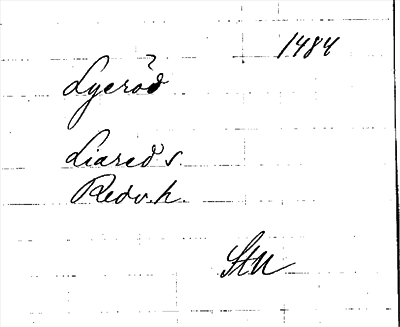 1484
Lyerod
Liared s
Redv. h.
StU